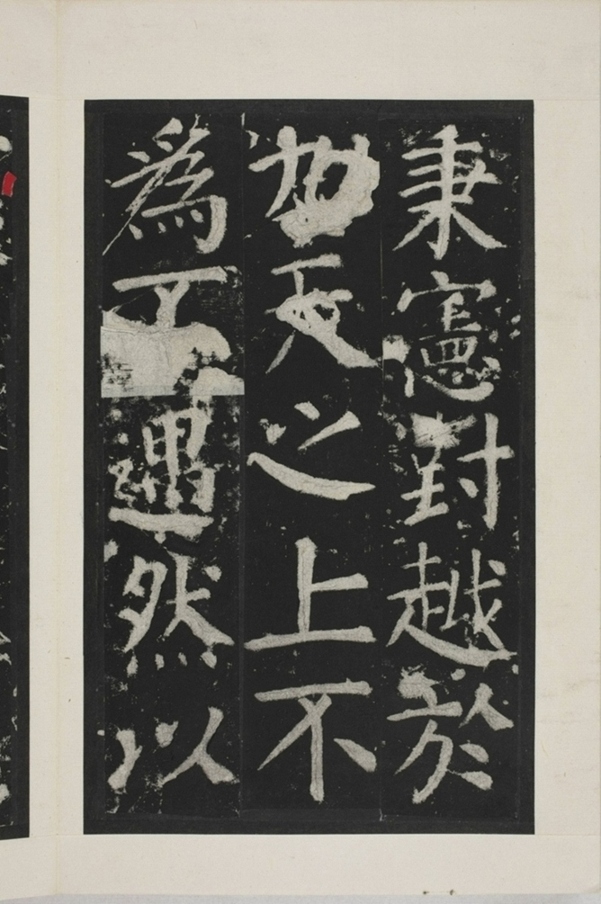 秉憲對越於
之上不
為不遇然以